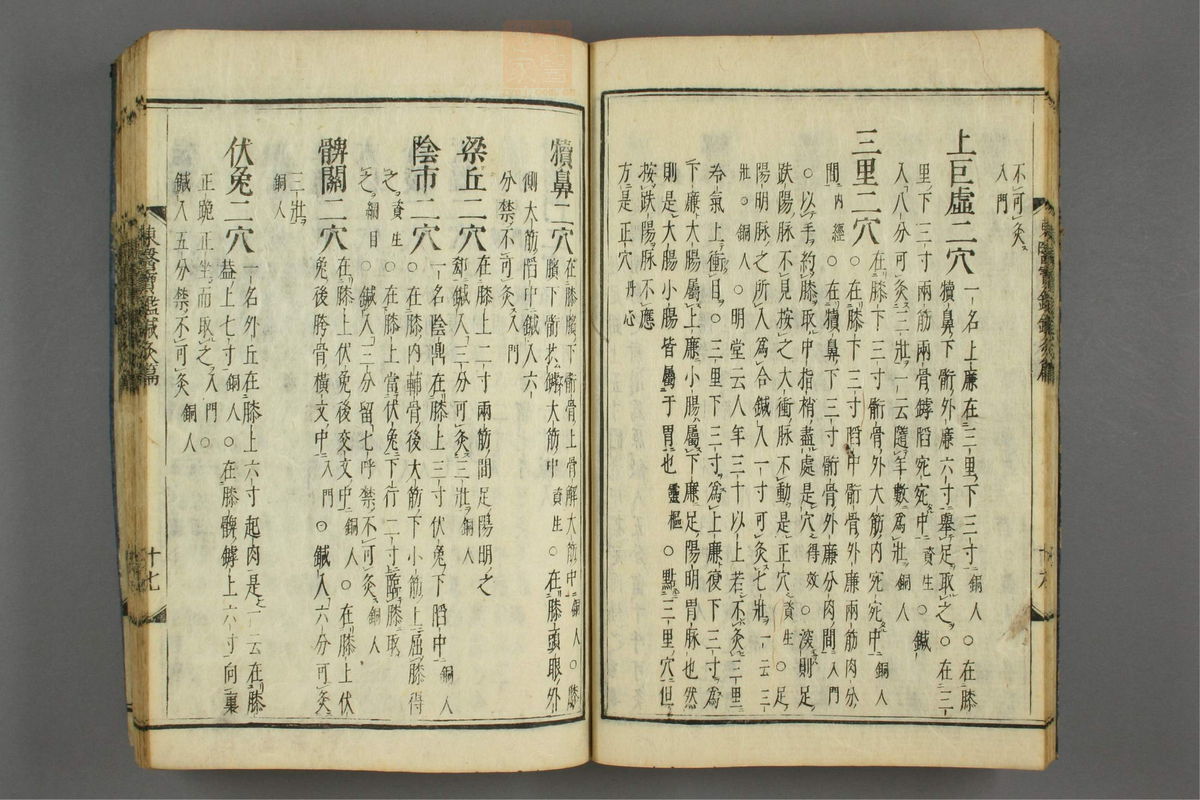 不可灸
入門
上巨虛二穴 一名上廉在三里下三寸銅人○在膝
犢鼻下䯒外廉六寸擧足取之○在三
里下三寸兩筋兩骨罅䧟宛宛中資生○鍼
入八分可灸三壯一云隨年數爲壯銅人
三里二穴 在膝下三寸䯒骨外大筋內宛宛中銅人
○在膝下三寸䯒骨外廉兩筋肉分
間內經○在犢鼻下三寸䯒骨外廉分肉間入門
○以手約膝取中指梢盡處是穴得效○深則足
趺陽脉不見按之大衝脉不動是正穴資生○足
陽明脉之所入爲合鍼入一寸可灸七壯一云三
壯銅人○明堂云人年三十以上若不灸三里
令氣上衝目○三里下三寸爲上廉復下三寸爲
下廉大腸屬上廉小腸屬下廉足陽明胃脉也然
則是大腸小腸皆屬于胃也靈樞○點三里穴但
按趺陽脉不應
方是正穴丹心
東醫寶鑑鍼灸篇
十六
犢鼻二穴 在膝臏下䯒骨上骨解大筋中銅人○膝
臏下䯒挾罅大筋中資生○在膝頭眼外
側大筋䧟中鍼入六
分禁不可灸入門
梁丘二穴 在膝上二寸兩筋間足陽明之
郄鍼入三分可灸三壯銅人
陰市二穴 一名陰鼎在膝上三寸伏兔下䧟中銅人
○在膝內輔骨後大筋下小筋上屈膝得
之資生○在膝上當伏兔下行二寸臨膝取
之綱目○鍼入三分留七呼禁不可灸銅人
髀關二穴 在膝上伏兔後交文中銅人○在膝上伏
兔後胯骨橫文中入門○鍼入六分可灸
三壯
銅人
伏兔二穴 一名外丘在膝上六寸起肉是一云在膝
蓋上七寸銅人○在膝髀罅上六寸向裏
正跪正坐而取之入門○
鍼入五分禁不可灸銅人
東醫寶鑑鍼灸篇
十七